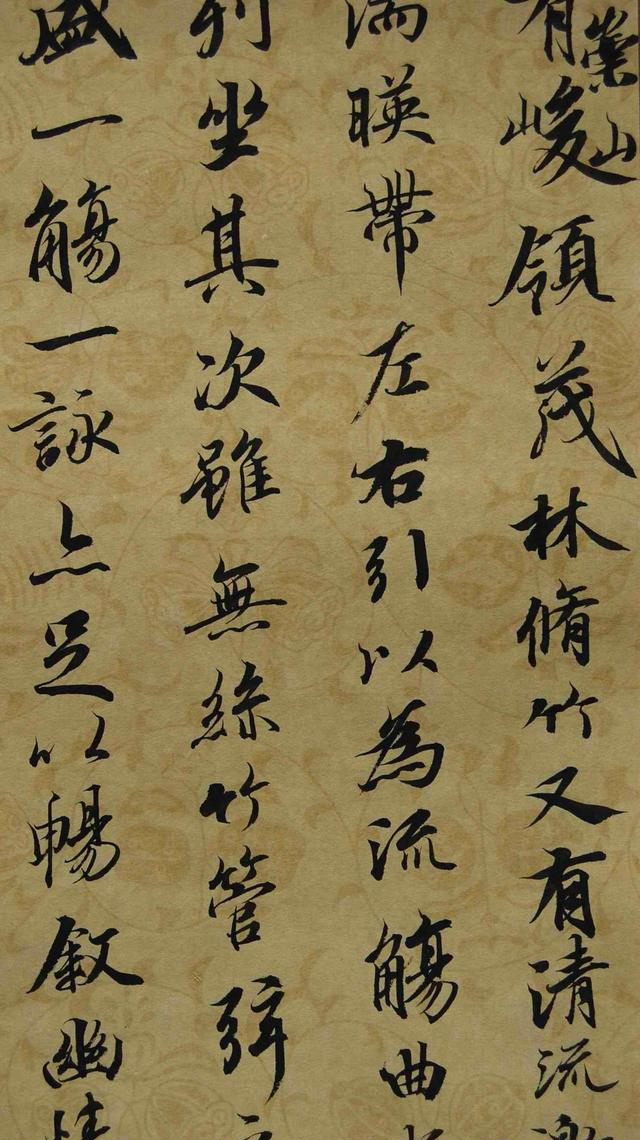 有崇山峻領茂林脩竹又有清流激
湍暎帶左右引以為流觴曲
列坐其次雖無絲竹管弦
盛一觴一詠亦足以暢敘幽情